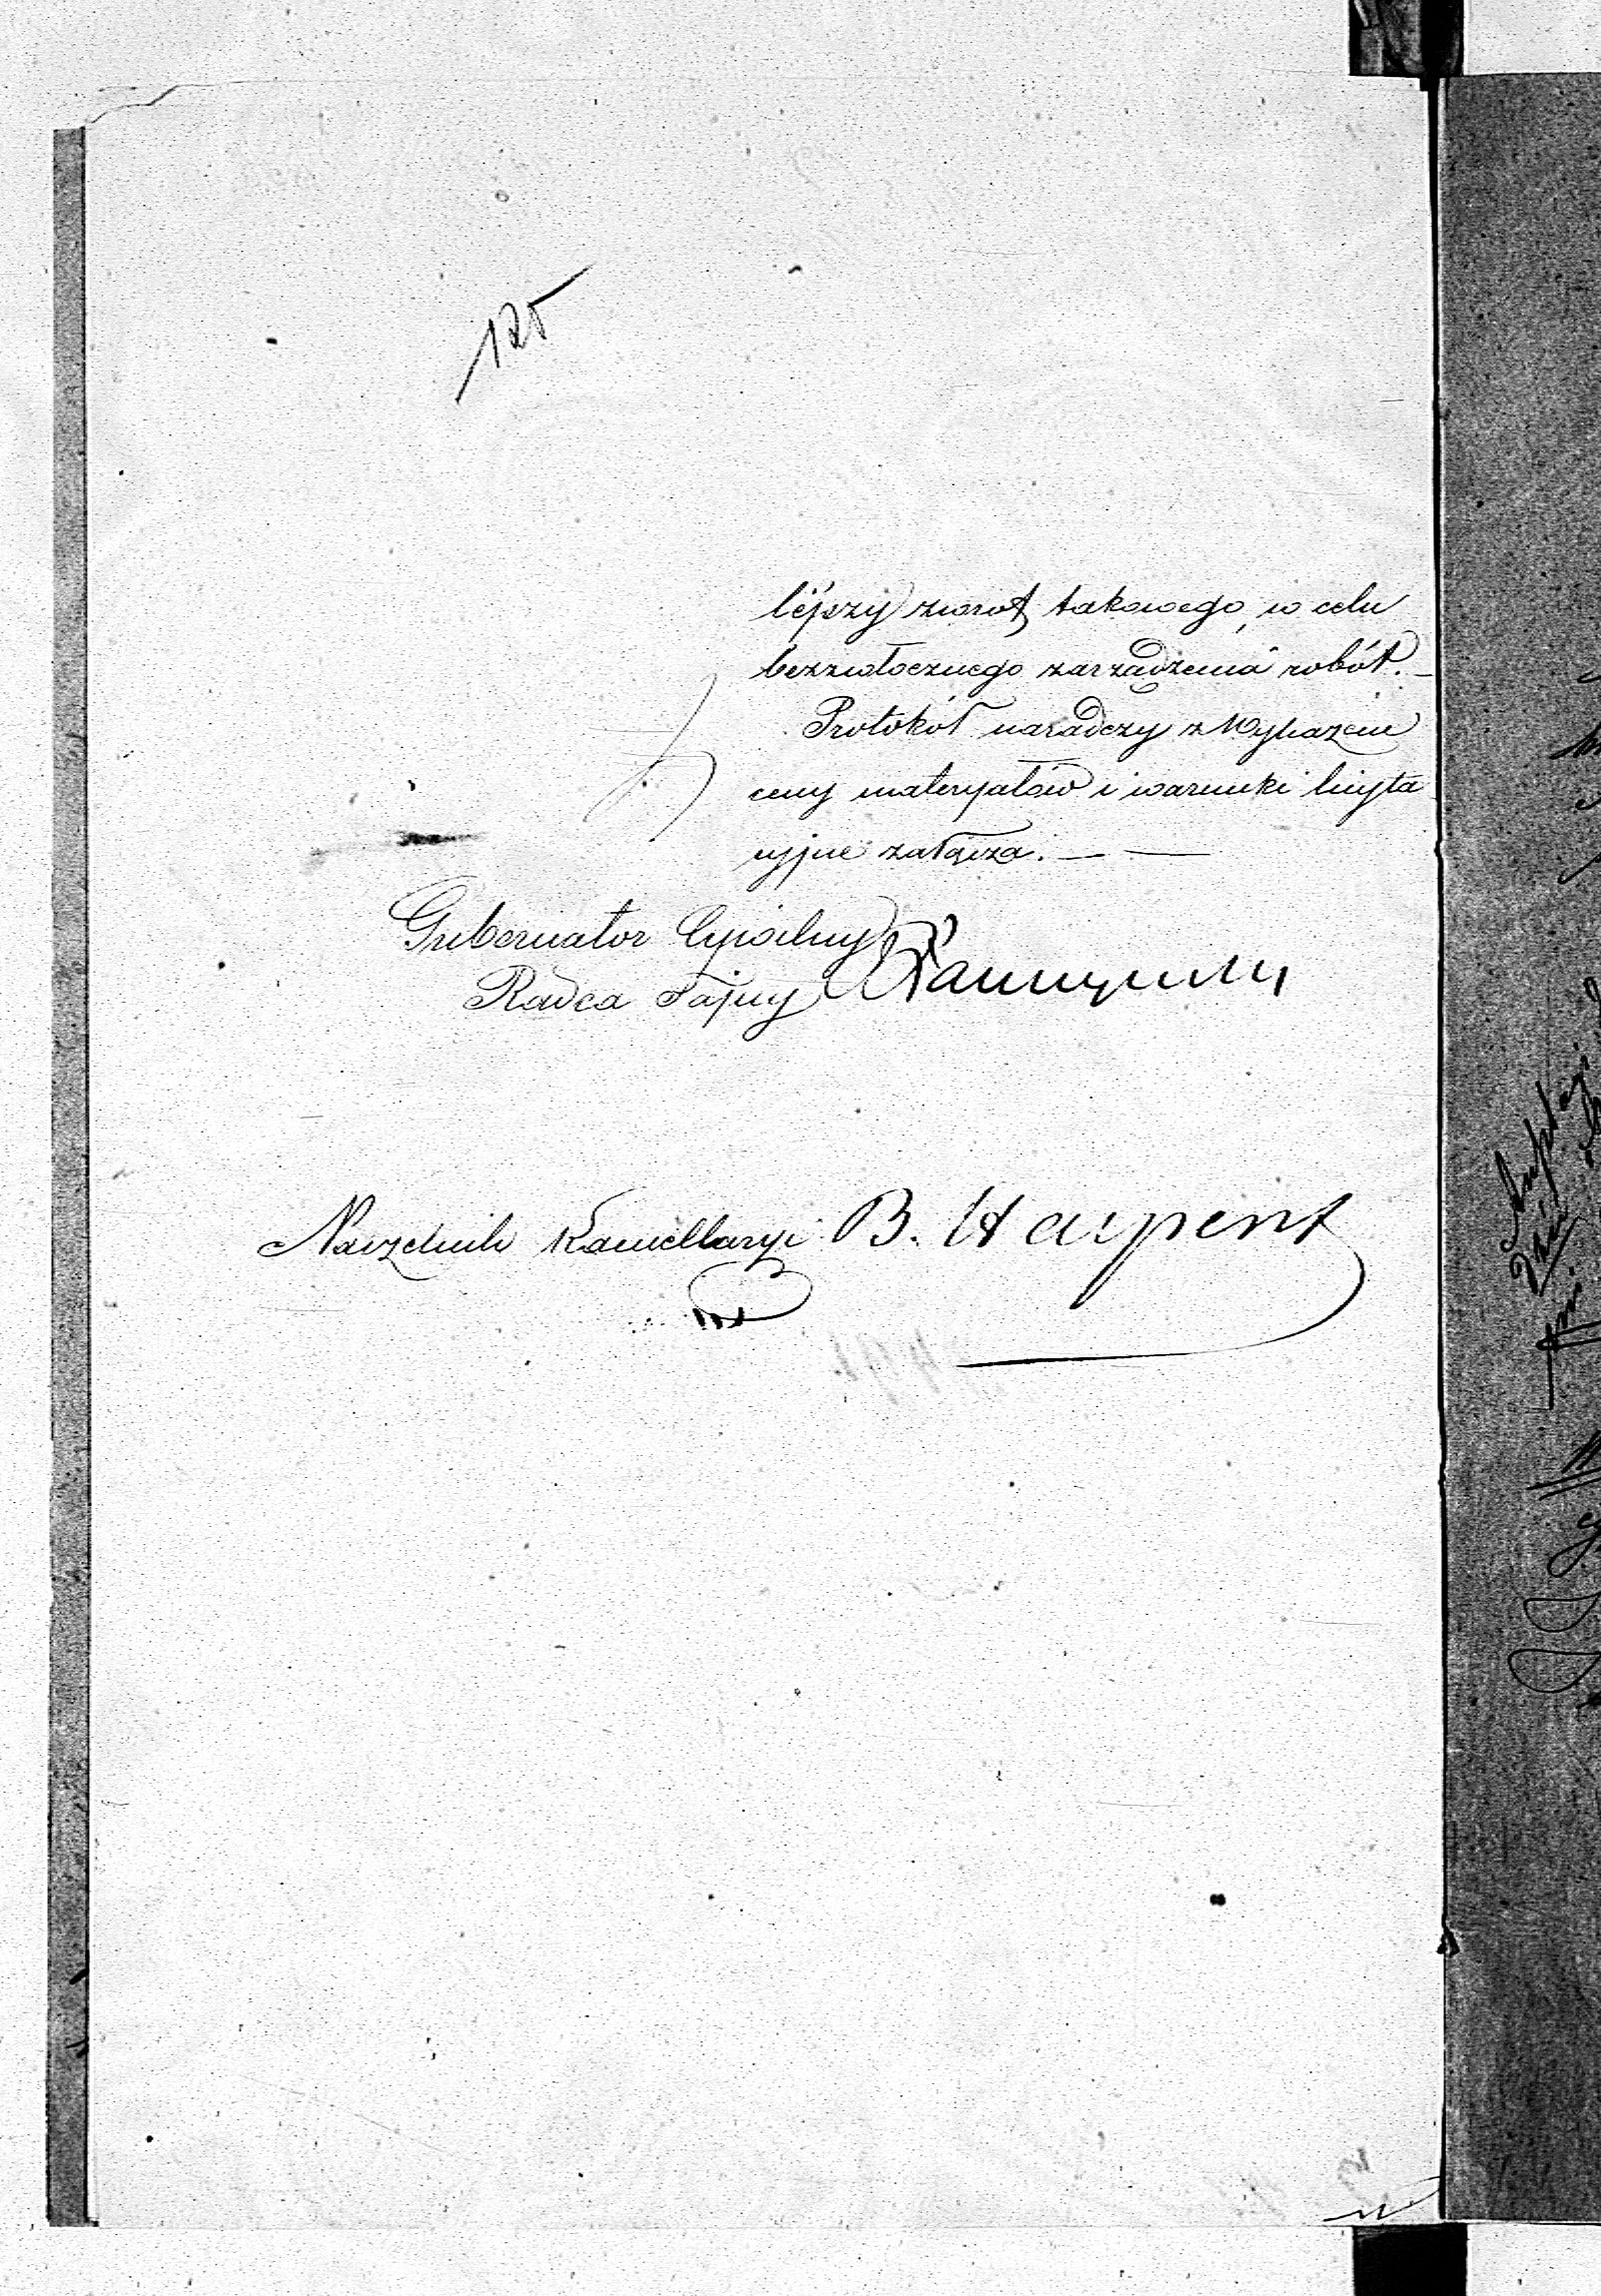 125
lépszy zwrot takowego, w celu
bezzwłocznego zarządzenia robót. —
Protokół naradczy z Wykazem
ceny materyałów i warunki licyta
cyjne załącza. — —
Gubernator Cywilny
Radca Tajny
Naczelnik Kancellaryi B. Harpent